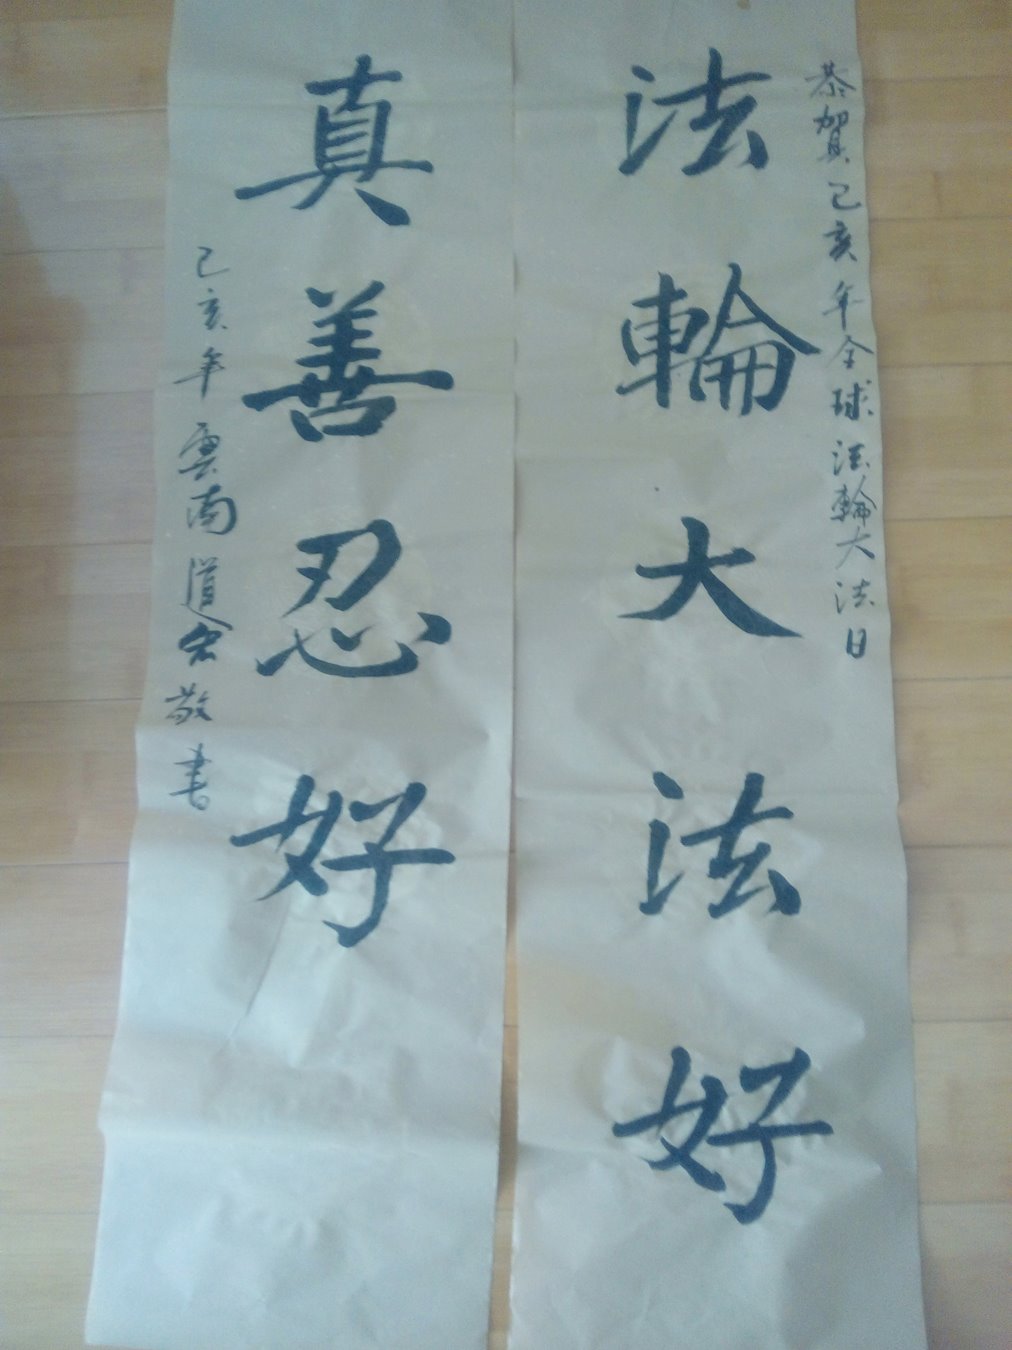 恭賀己亥年全球法輪大法日
法輪大法好
真善忍好
己亥年雲南道宏敬書